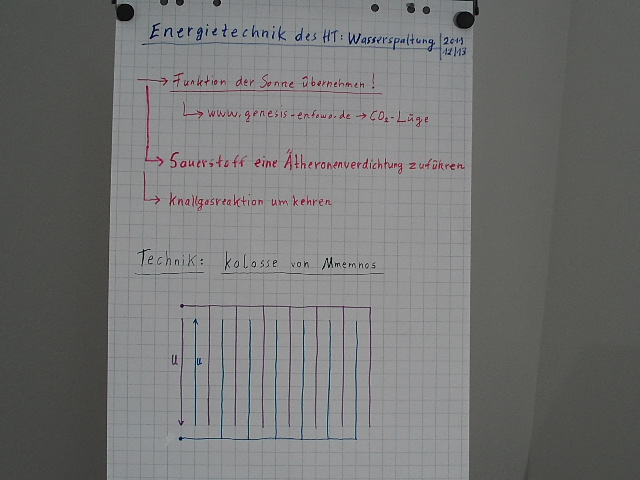 Energietechnik des HT: Wasserspaltung
2011
12/13
→ Funktion der Sonne übernehmen!
→ www.genesis-enfowa.de → CO₂-Lüge
→ Sauerstoff eine Ätheronenverdichtung zuführen
→ Knallgasreaktion umkehren
Technik: Kolosse von Mmemnos
U U